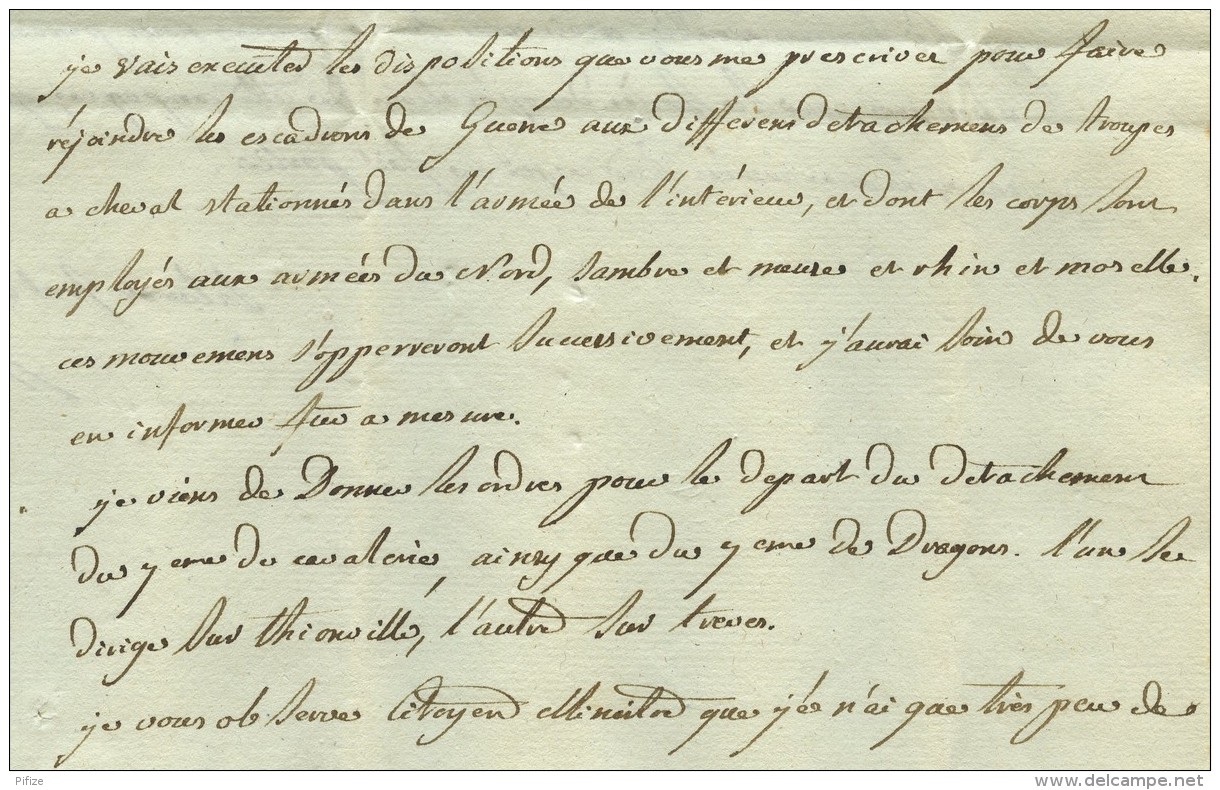 je vais executer les dispositions que vous me prescrivez pour faire
réjoindre les escadrons de Guerre aux differens detachemens de troupes
a cheval stationnés dans l'armée de l'intérieur, et dont les corps sont
employés aux armées du Nord, Sambre et meuse et rhin et moselle.
ces mouvemens s'opperreront successivement, et j'aurai soin de vous
en informer fur a mesure.
je viens de Donner les ordres pour le depart du detachement
du 7eme de cavalerie, ainsy que du 7eme de Dragons. l'un se
dirige sur thionville, l'autre sur treves.
je vous observe Citoyen Ministre que je n'ai que très peu de
Pifize
www.delcampe.net